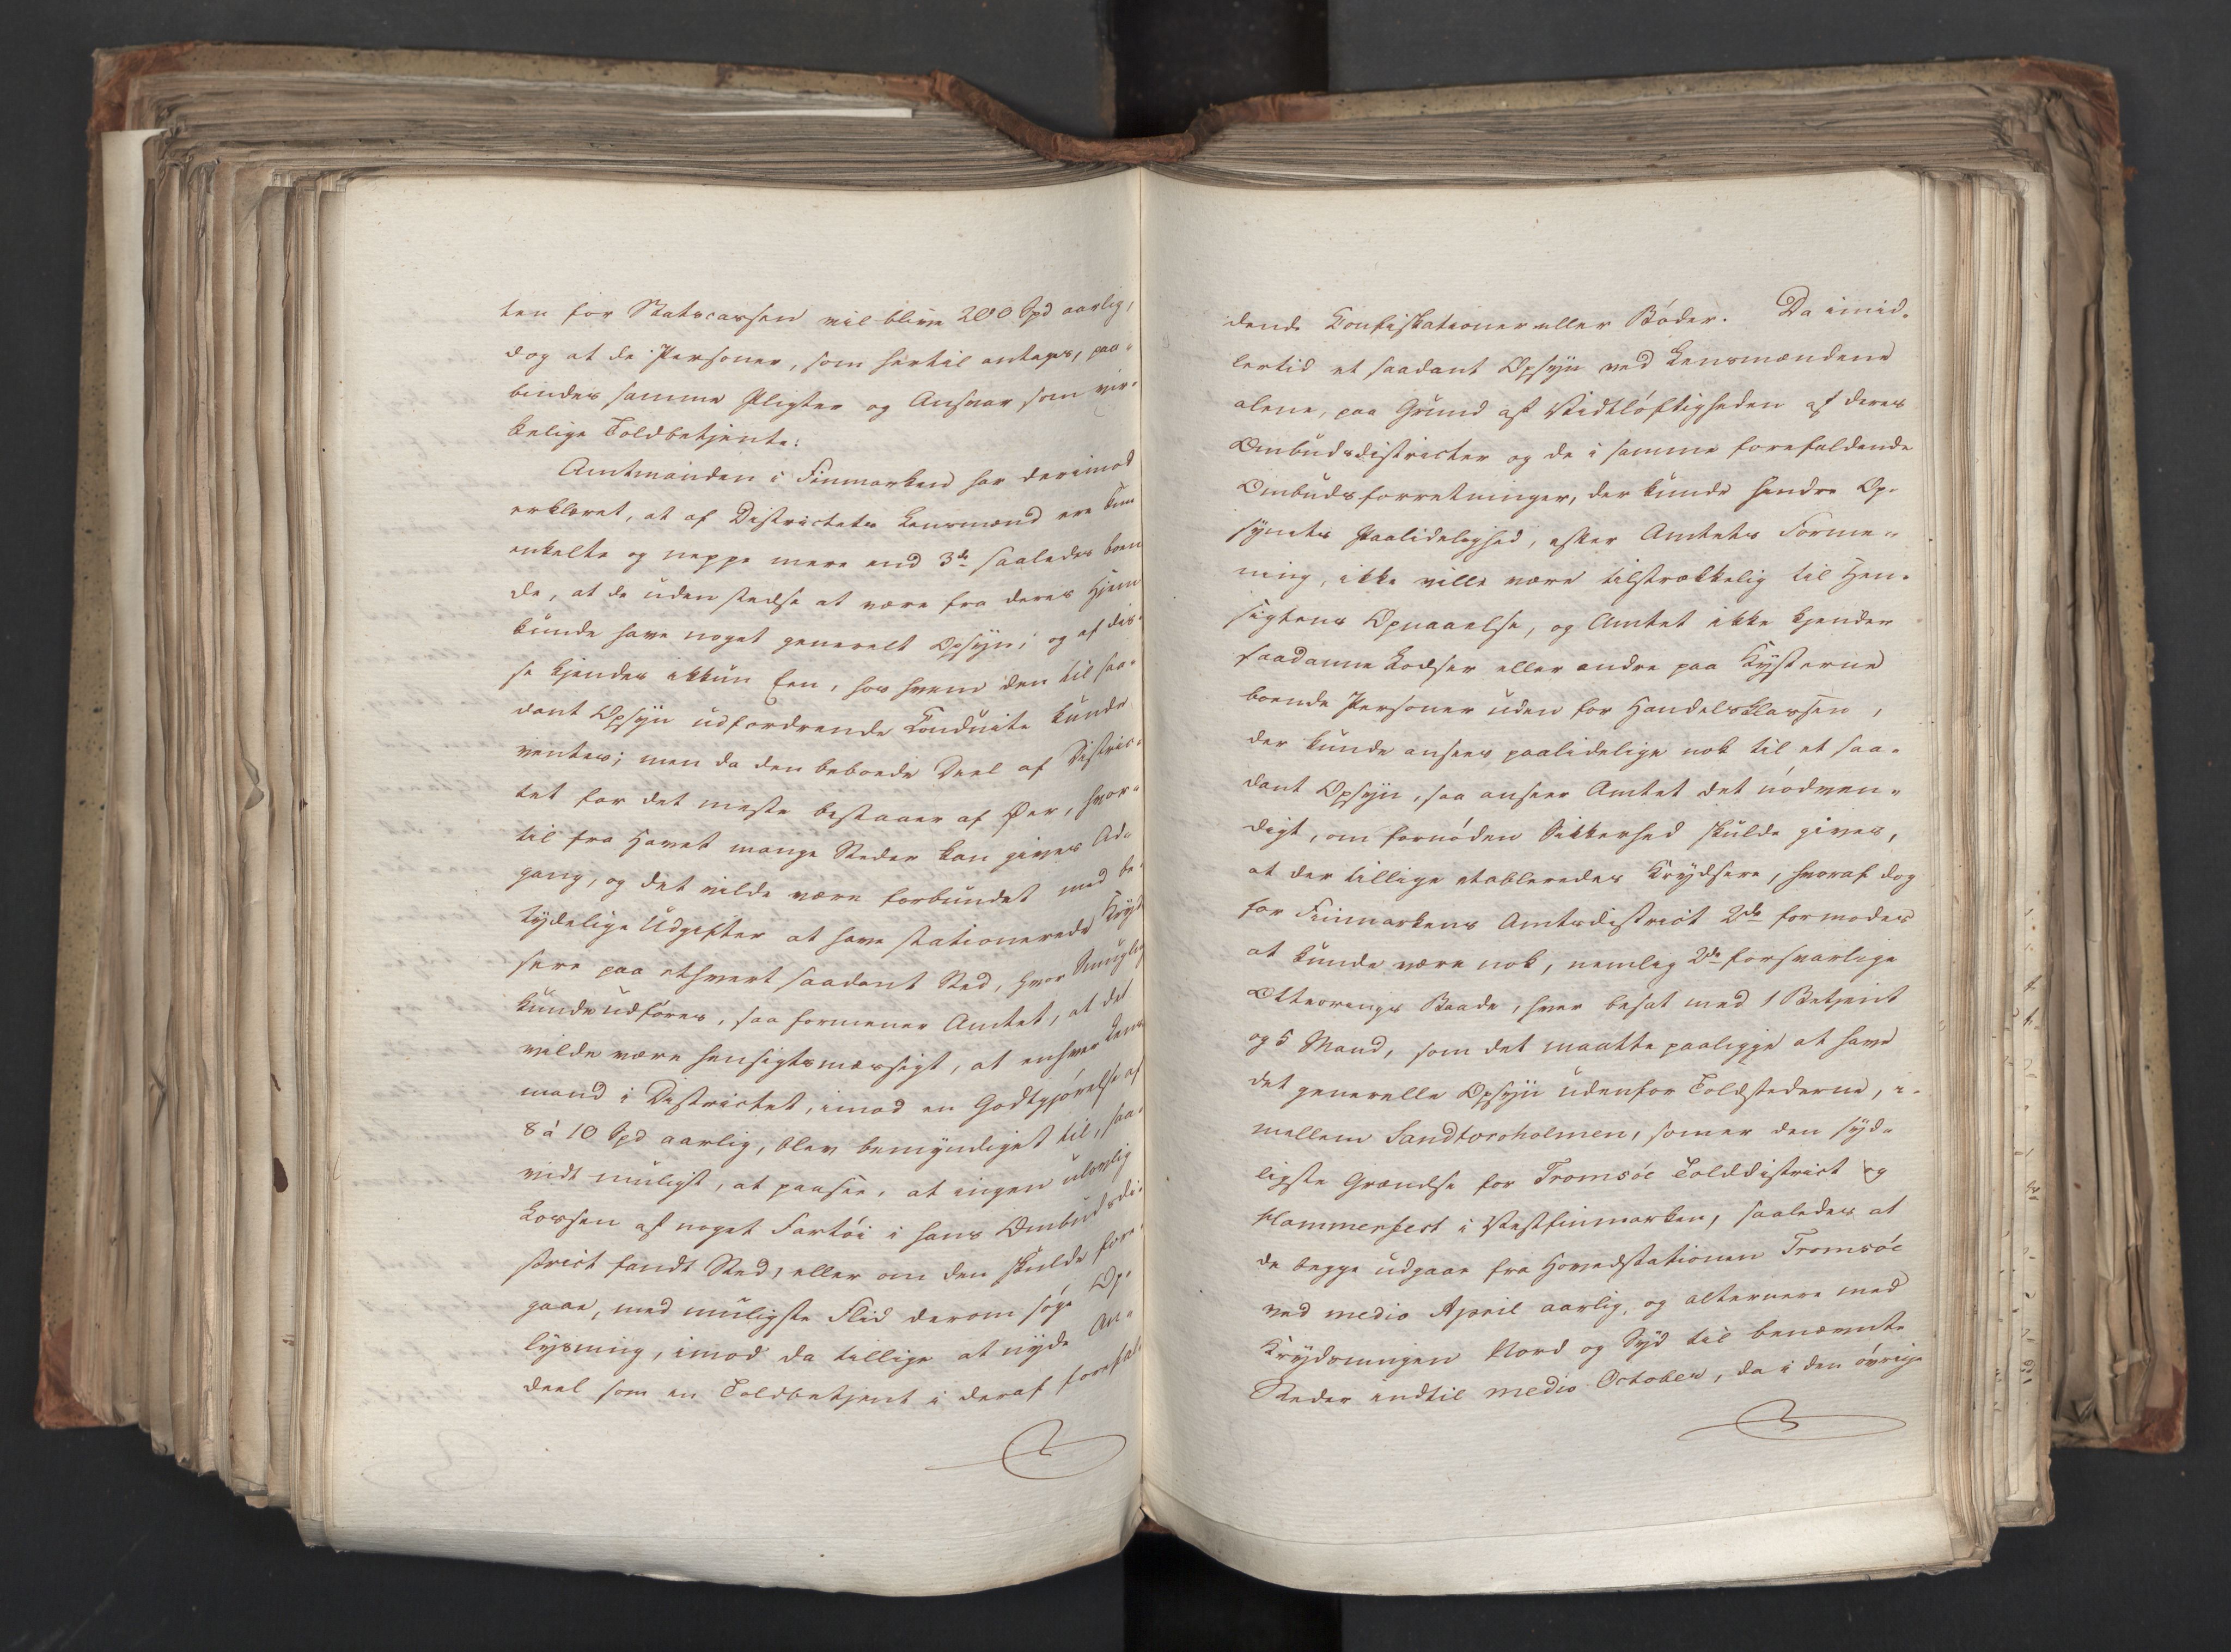 ten for Statscassen vil blive 200 Spd aarlig,
dog at de Personer, som hertil antages, paa-
bindes samme Pligter og Ansvar som vir-
kelige Toldbetjente.
Amtmanden i Finmarken har derimod
erklæret, at af Districtets Lensmænd ere kun
enkelte og neppe mere end 3de saaledes boen
de, at de uden stedse at være fra deres Hjem
kunde have noget generelt Opsyn; og af dis-
se kjendes ikkun Een, hos hvem den til saa-
dant Opsyn udfordrende Conduite kunde
ventes; men da den beboede Deel af Distric-
tet for det meste bestaaer af Øer, hvor-
til fra Havet mange Steder kan gives Ad-
gang, og det vilde være forbundet med be-
tydelige Udgifter at have stationerede Kryd
sere paa ethvert saadant Sted, hvor Smugleri
kunde udføres, saa formener Amtet, at det
vilde være hensigtsmæssigt, at enhver Lens
mand i Districtet, imod en Godtgjørelse af
8 à 10 Spd aarlig, blev bemyndiget til, saa-
vidt muligt, at paasee, at ingen ulovlig
Lossen af noget Fartøi i hans Ombudsdi-
strict fandt Sted, eller om den skulde fore-
gaae, med muligste Flid derom søge Op-
lysning, imod da tillige at nyde An-
deel som en Toldbetjent i deraf forefal-
dende Confiskationer eller Bøder. Da imid-
lertid et saadant Opsyn ved Lensmændene
alene, paa Grund af Vidtløftigheden af deres
Ombudsdistricter og de i samme forefaldende
Ombudsforretninger, der kunde hindre Op-
synets Paalidelighed, efter Amtets Forme-
ning, ikke ville være tilstrækkelig til Hen-
sigtens Opnaaelse, og Amtet ikke kjender
saadanne Lodser eller andre paa Kysterne
boende Personer uden for Handelsklassen,
der kunde ansees paalidelige nok til et saa-
dant Opsyn, saa anseer Amtet det nødven-
digt, om fornøden Sikkerhed skulde gives,
at der tillige etableredes Krydsere, hvoraf dog
for Finmarkens Amtsdistrict 2de formodes
at kunde være nok, nemlig 2de forsvarlige
Otterings Baade, hver besat med 1 Betjent
og 5 Mand, som det maatte paaligge at have
det generelle Opsyn udenfor Toldstederne, i-
mellem Sandtorvholmen, som er den syd-
ligste Grændse for Tromsöe Tolddistrict og
Hammerfest i Vestfinmarken, saaledes at
de begge udgaae fra Hovedstationen Tromsöe
ved medio April aarlig, og alternere med
Krydsningen Nord og Syd til benævnte
Steder indtil medio October, da i den øvrige